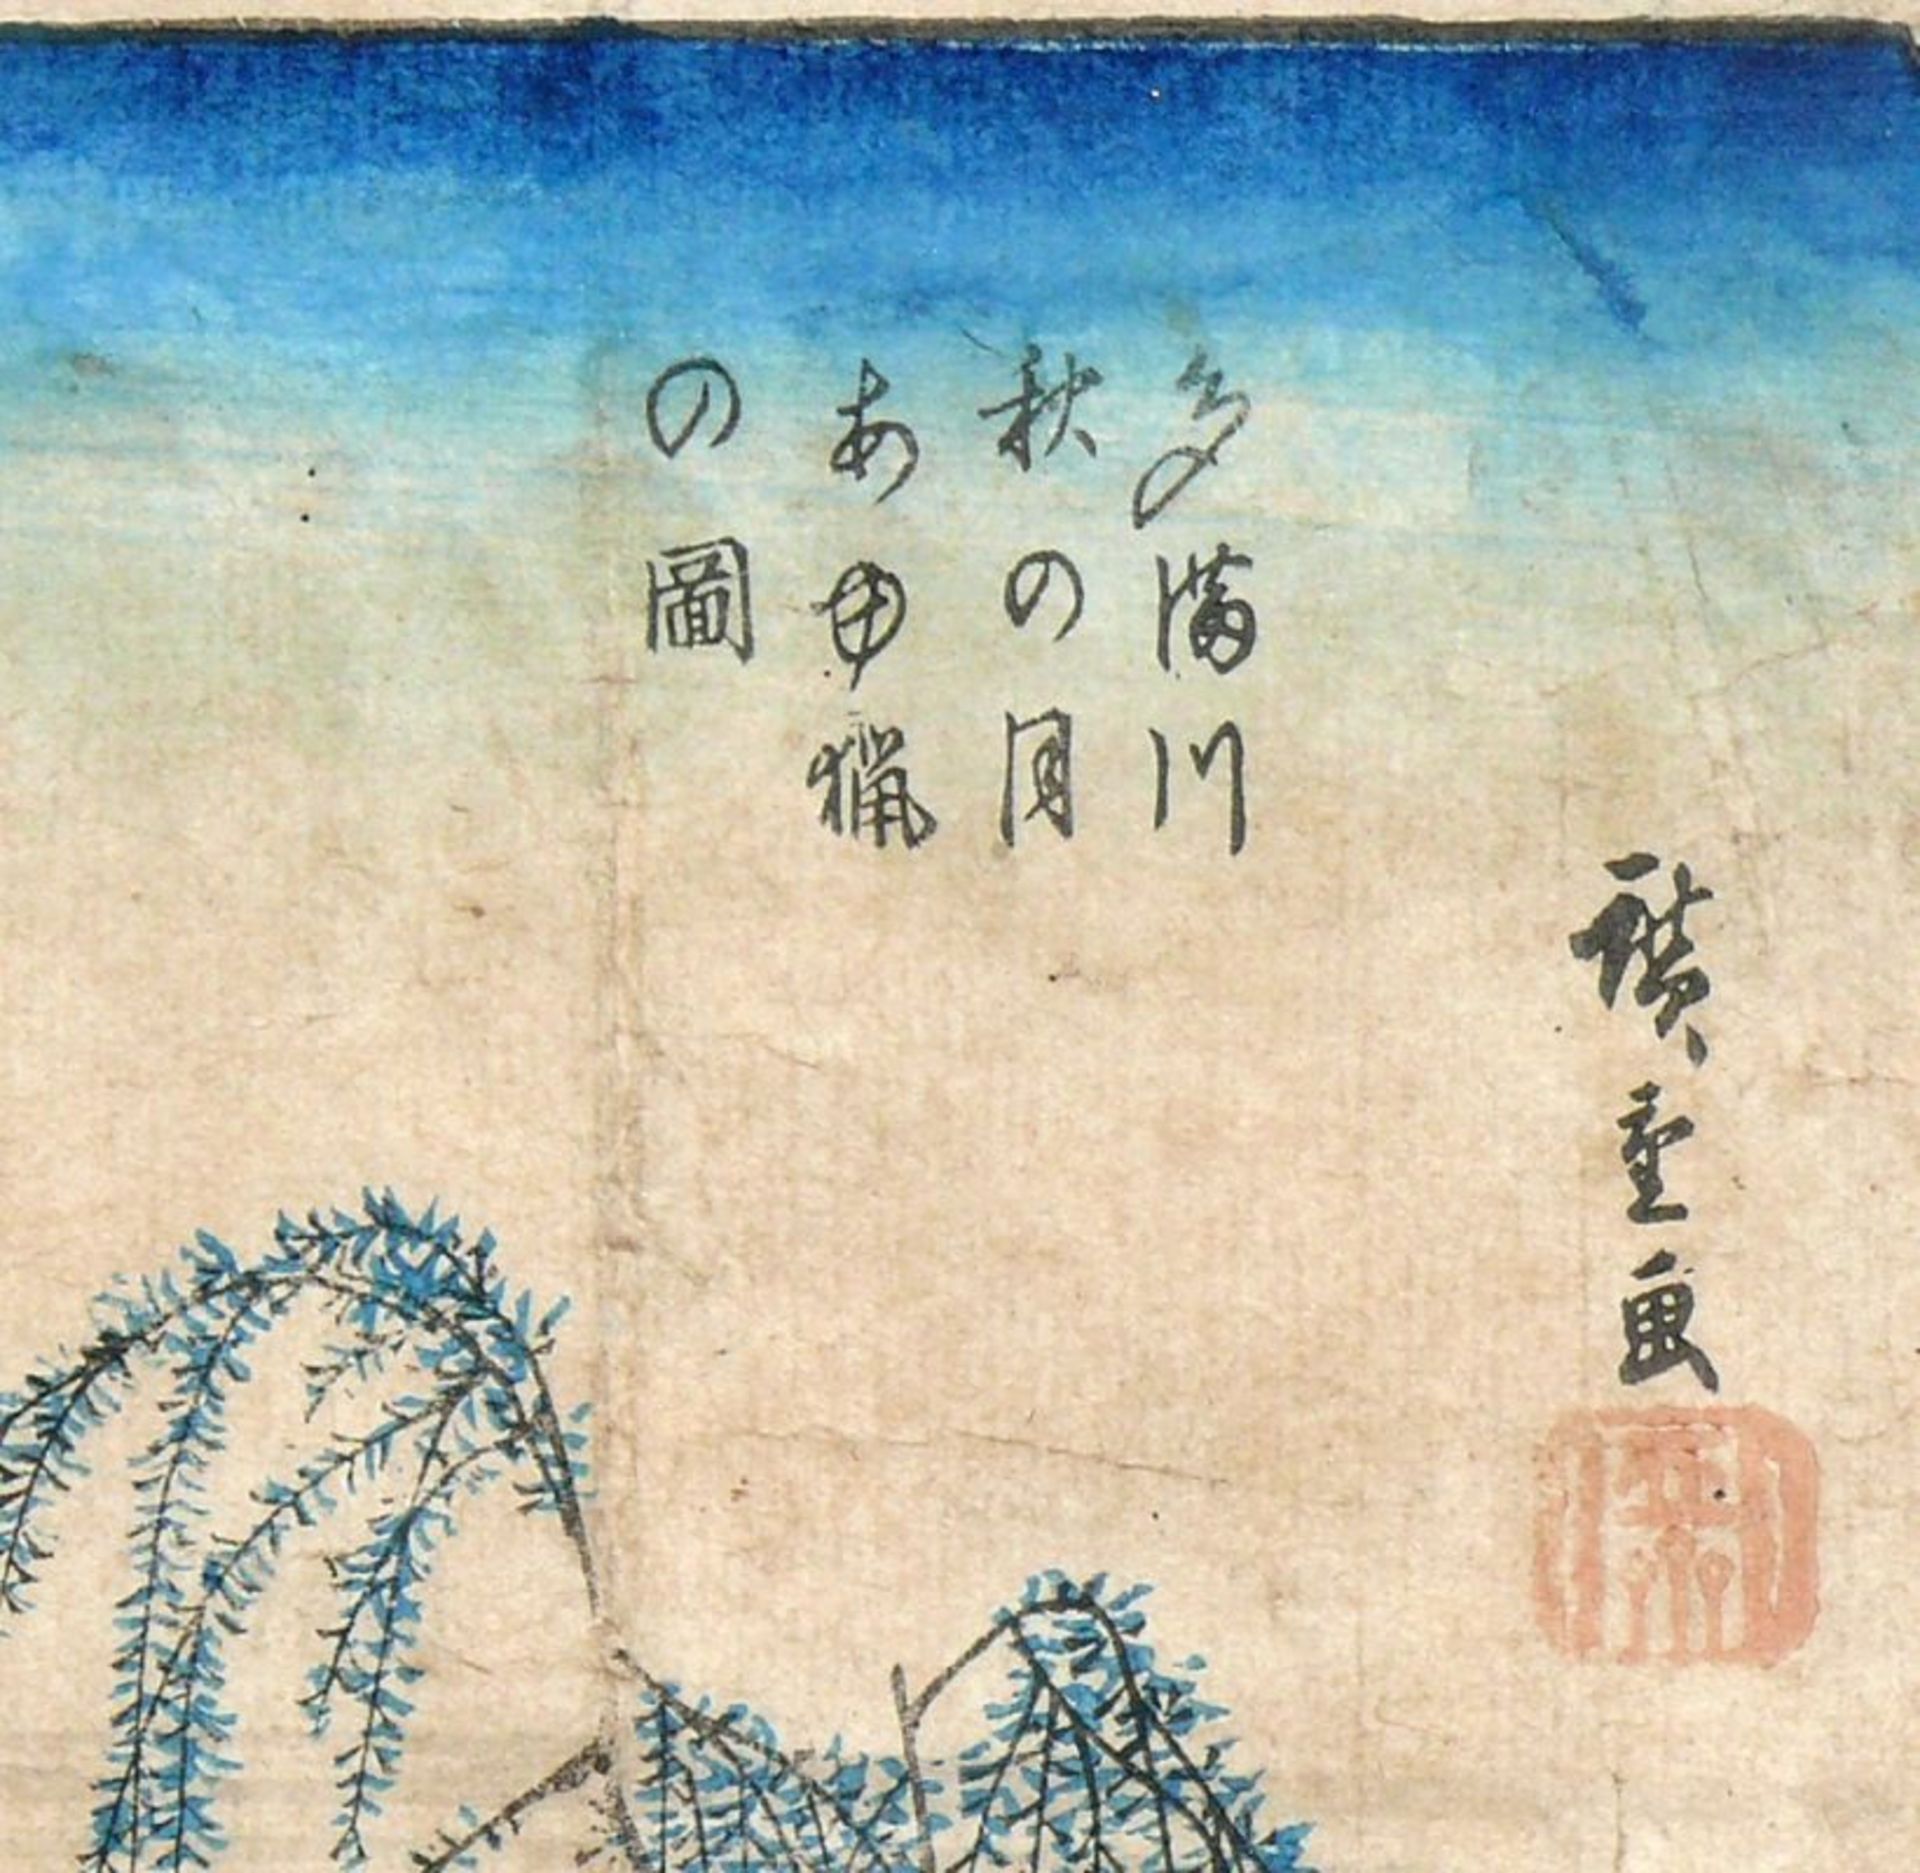 多満川
秋の月
あゆ猟
の圖
廣重画